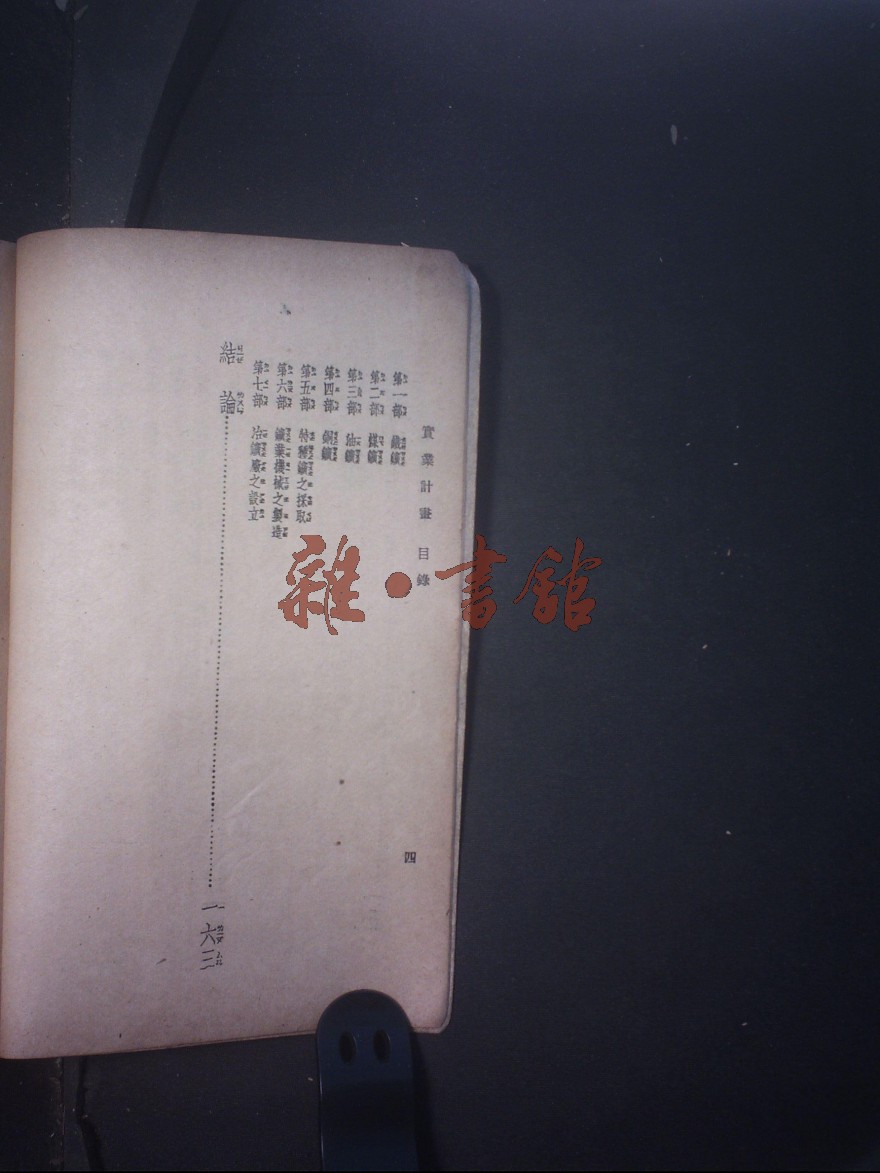 實業計畫 目錄
四
第一部 鐵鑛
第二部 煤鑛
第三部 油鑛
第四部 銅鑛
第五部 特種鑛之採取
第六部 鑛業機械之製造
第七部 冶鑛廠之設立
結論……一六三
雜·書館